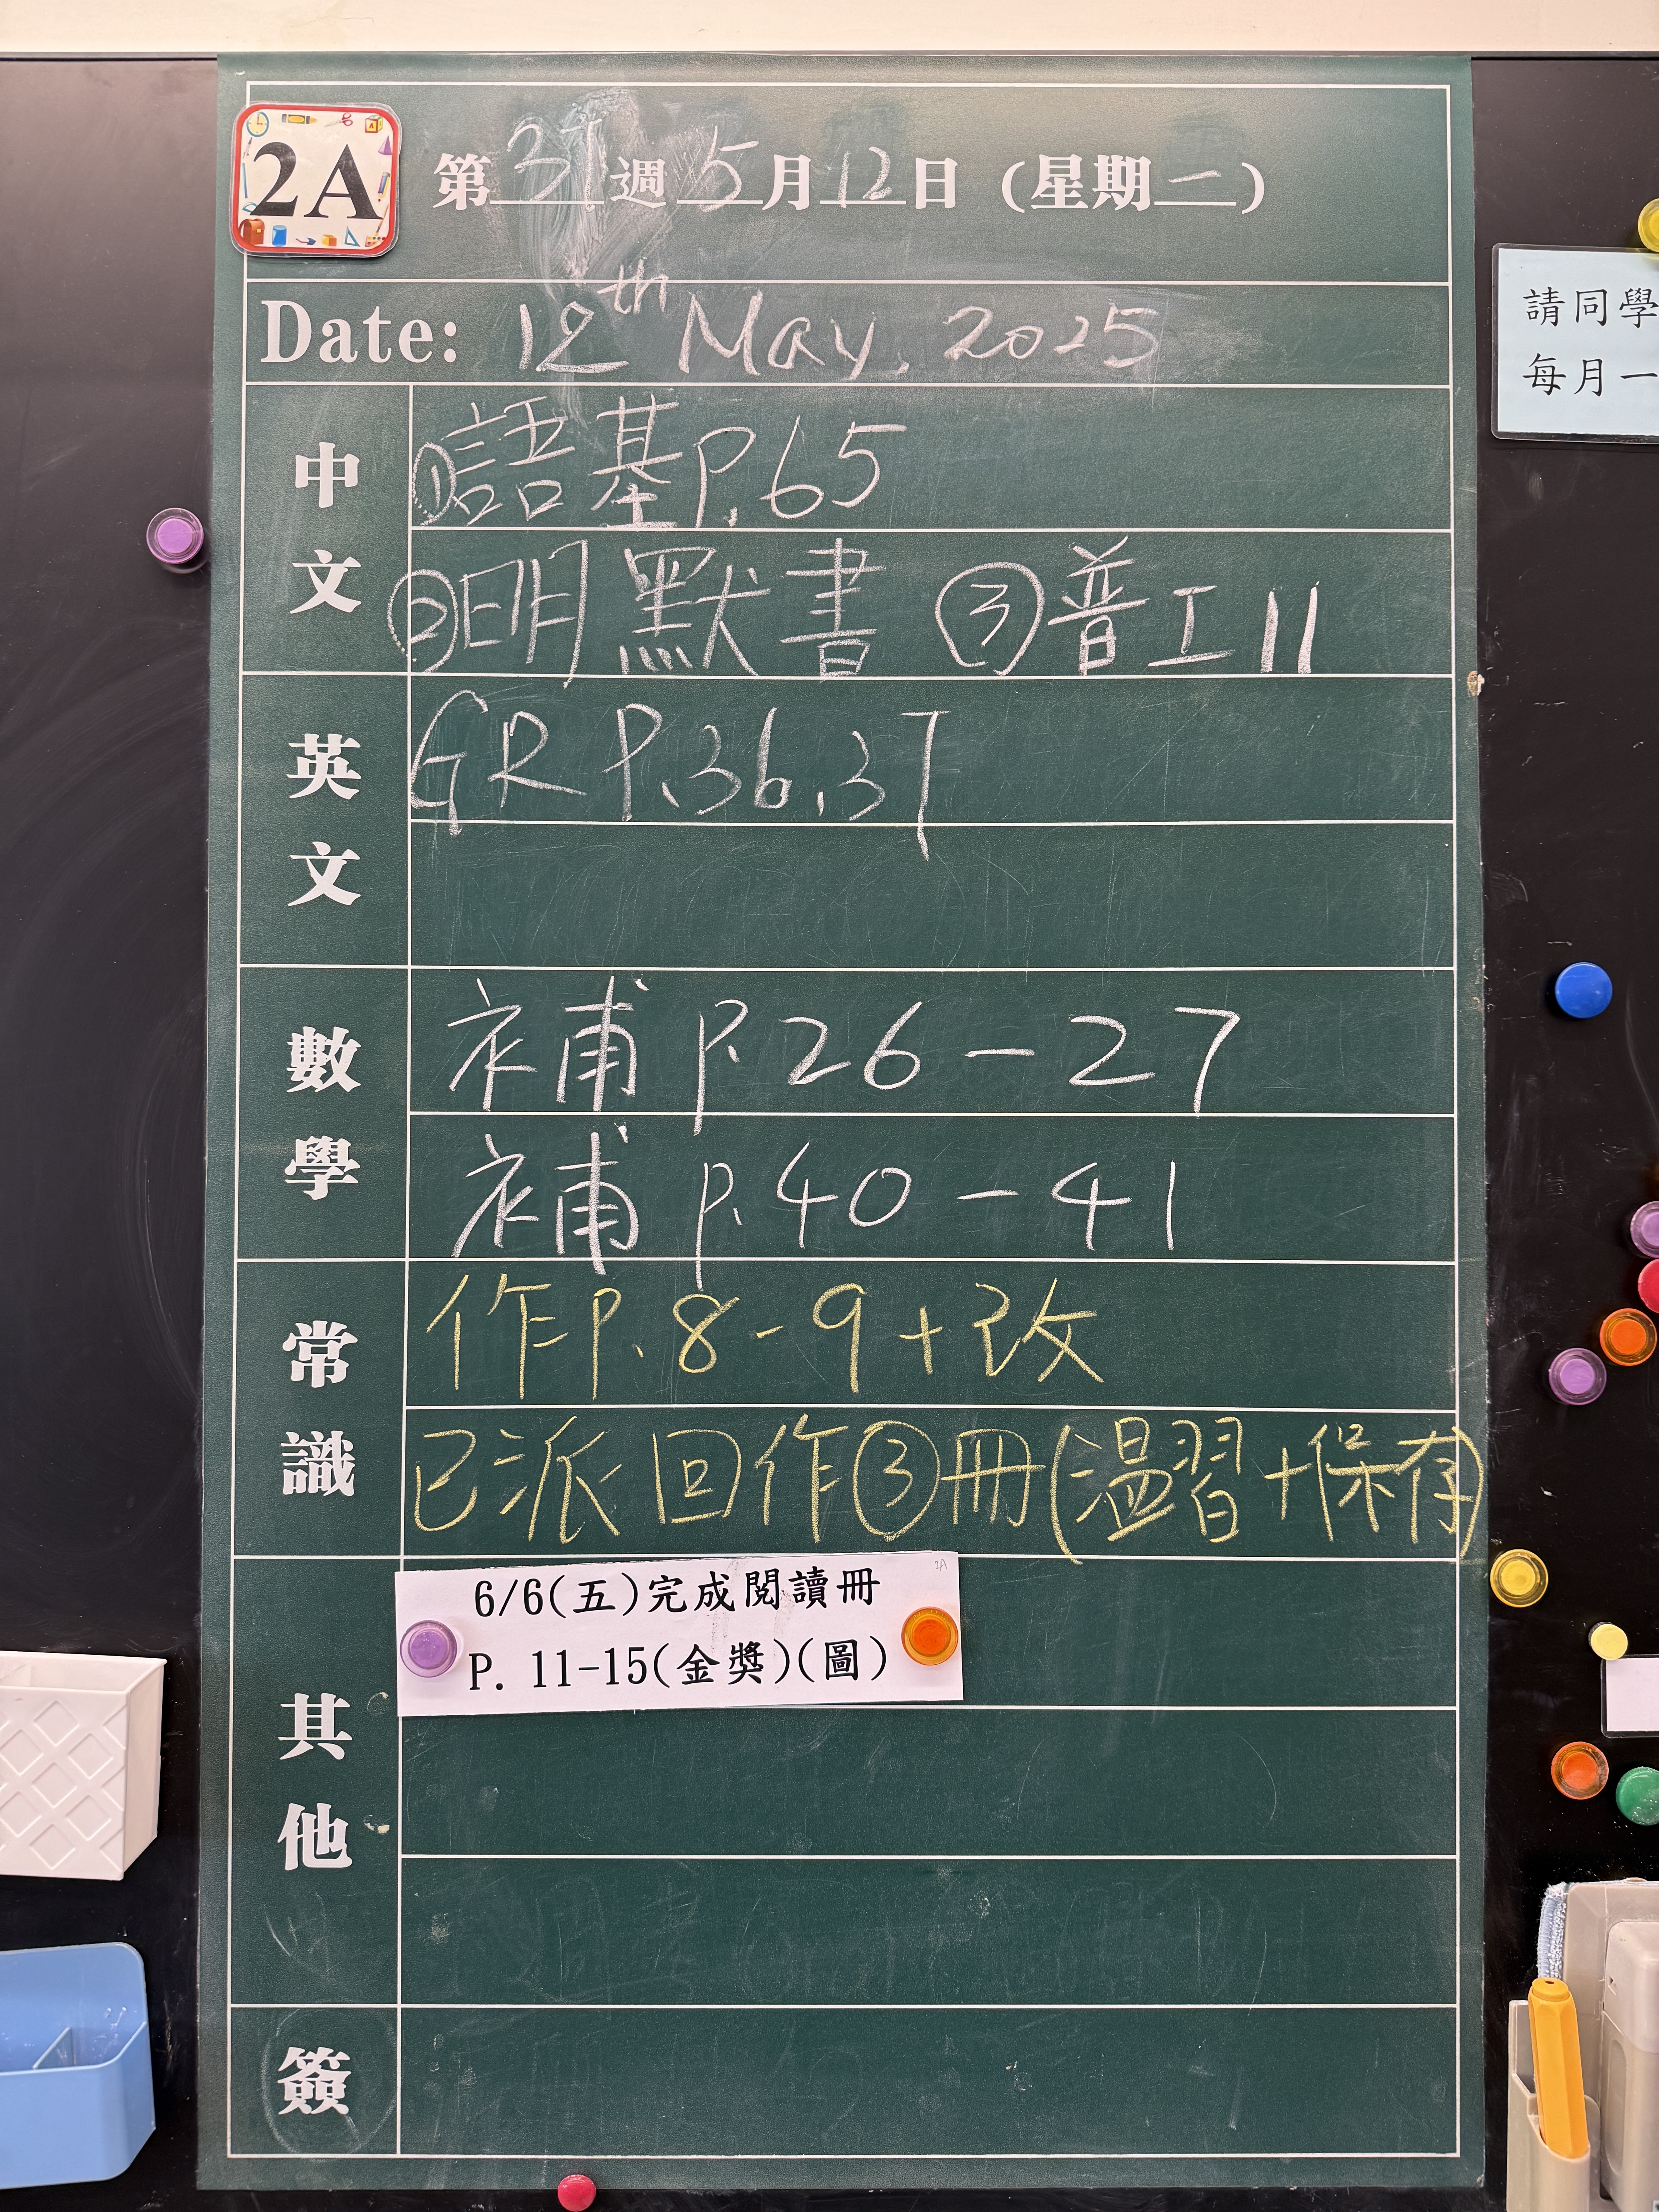 2A
第37週5月12日(星期一)
Date: 12th May, 2025
中文
①語基P.65
②明默書 ③普工11
英文
GR P.36,37
數學
補P.26-27
補P.40-41
常識
作P.8-9+改
已派回作③冊(溫習+保存)
其他
2A
6/6(五)完成閱讀冊
P. 11-15(金獎)(圖)
簽
請同學
每月一